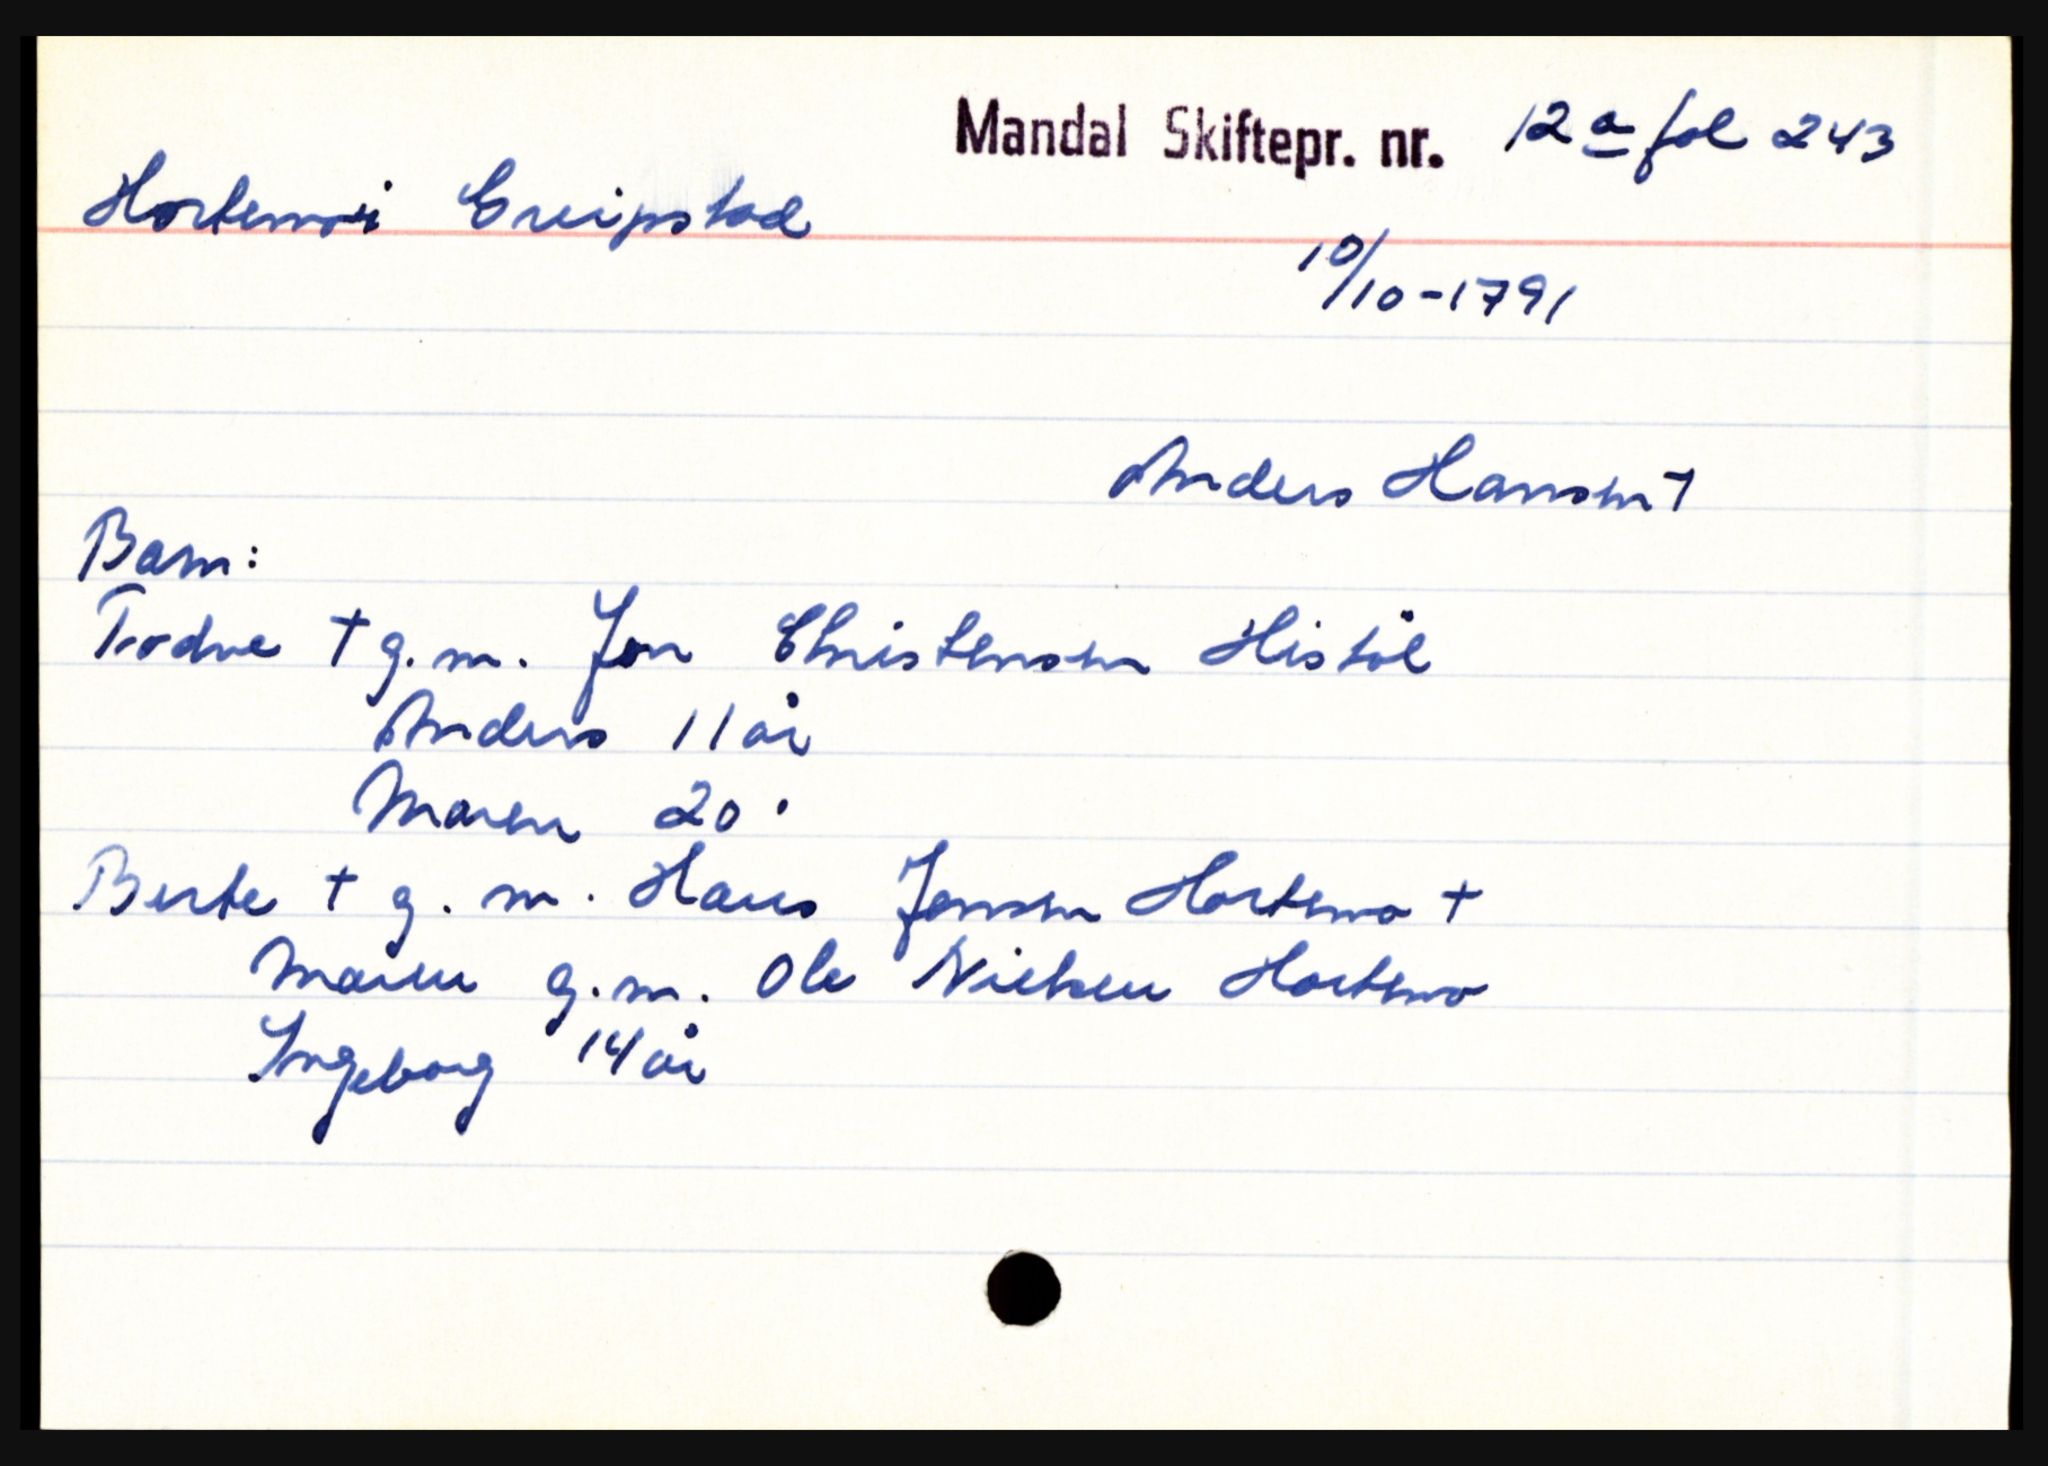 Mandal Skiftepr. nr. 12a fol 243
Hortemo i Greipstad
10/10-1791
Anders Hansen †
Barn:
Todne † g.m. Jon Christensen Histöl
Anders 11 år
Maren 20 "
Berte † g.m. Hans Jensen Hortemo †
Maren g.m. Ole Nielsen Hortemo
Ingeborg 14 år